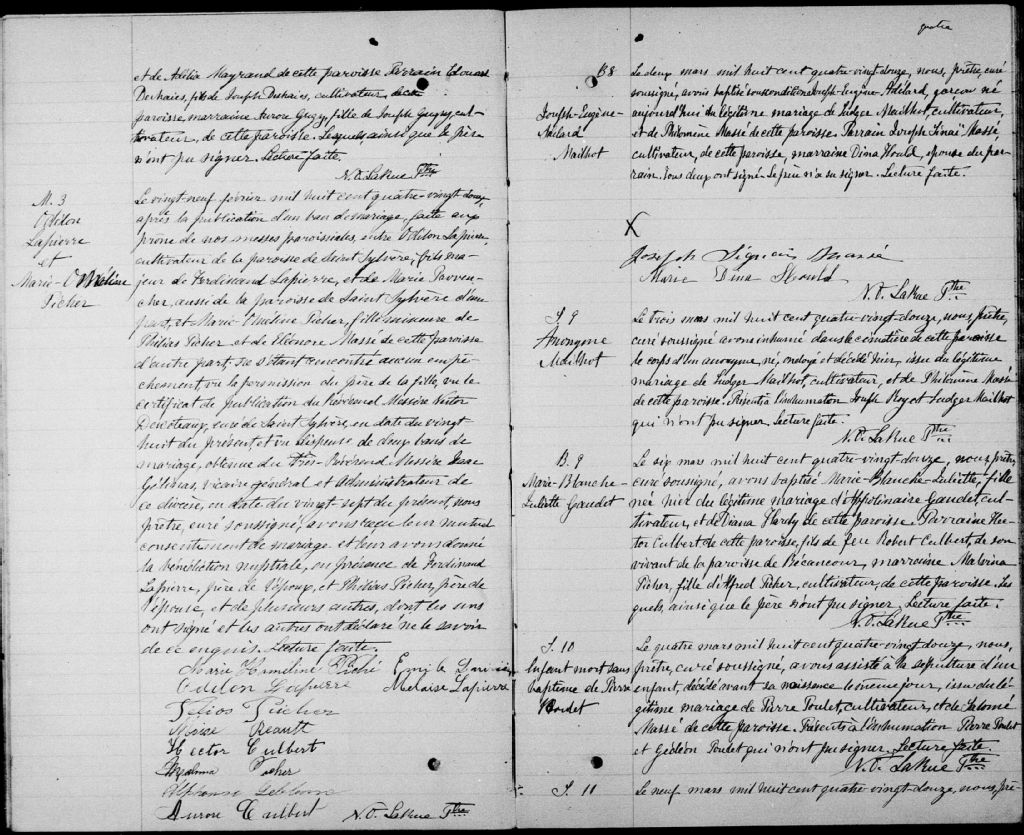 et de Adélia Mayrand de cette paroisse Parrain Edouard
Deshaies, fils de Joseph Deshaies, cultivateur, de cette
paroisse, marraine Aurore Guay, fille de Joseph Guay, cul-
tivateur, de cette paroisse. Lesquels, ainsi que le père
n'ont pu signer. Lecture faite.
N.O. LaRue Ptre
M. 3
Odilon
Lapierre
et
Marie-Oméline
Picher
Le vingt-neuf février mil huit cent quatre-vingt douze,
après la publication d'un ban de mariage, faite au
prône de nos messes paroissiales, entre Odilon Lapierre,
cultivateur de la paroisse de Saint Sylvère, fils ma-
jeur de Ferdinand Lapierre, et de Marie Proven-
cher, aussi de la paroisse de Saint Sylvère d'une
part, et Marie Oméline Picher, fille mineure de
Philias Picher et de Eléonore Massé de cette paroisse
d'autre part, ne s'étant rencontré aucun empê-
chement, vu la permission du père de la fille, vu le
certificat de publication du Révérend Messire
curé de Saint Sylvère, en date du vingt
huit du présent, et vu dispense de deux bans de
mariage, obtenue du Très-Révérend Messire Isaac
Gélinas, vicaire général et Administrateur de
ce diocèse, en date du vingt sept du présent, nous
prêtre, curé soussigné, avons reçu leur mutuel
consentement de mariage et leur avons donné
la bénédiction nuptiale, en présence de Ferdinand
Lapierre, père de l'époux, et Philias Picher, père de
l'épouse, et de plusieurs autres, dont les uns
ont signé et les autres ont déclaré ne le savoir
de ce enquis. Lecture faite.
Marie Hameline Piché
Odilon Lapierre Meloise Lapierre
Picher
Hector Culbert
Picher
Alphonse
Aurore Culbert N.O. LaRue Ptre
quatre
B 8
Joseph-Eugène-
Adélard
Mailhot
Le deux mars mil huit cent quatre-vingt douze, nous, prêtre, curé
soussigné, avons baptisé sous condition Joseph-Eugène-Adélard, garçon né
aujourd'hui du légitime mariage de Ludger Mailhot, cultivateur,
et de Philomène Massé de cette paroisse. Parrain Joseph Sinaï Massé,
cultivateur, de cette paroisse, marraine Dina Hould, épouse du par-
rain. Tous deux ont signé. Le père n'a su signer. Lecture faite.
X
Joseph Massé
Marie Dina Hould
N.O. LaRue Ptre
S 9
Anonyme
Mailhot
Le trois mars mil huit cent quatre-vingt douze, nous, prêtre,
curé soussigné avons inhumé dans le cimetière de cette paroisse
le corps d'un anonyme, né, ondoyé et décédé hier, issu du légitime
mariage de Ludger Mailhot, cultivateur, et de Philomène Massé
de cette paroisse. Présents à l'inhumation Joseph Roy et Ludger Mailhot
qui n'ont pu signer. Lecture faite.
N.O. LaRue Ptre
B. 9
Marie-Blanche-
Juliette Gaudet
Le six mars mil huit cent quatre-vingt douze, nous, prêtre,
curé soussigné, avons baptisé Marie-Blanche-Juliette, fille
née hier du légitime mariage d'Appolinaire Gaudet, cul-
tivateur, et de Diana Hardy de cette paroisse. Parraine Hec-
tor Culbert de cette paroisse, fils de feu Robert Culbert, de son
vivant de la paroisse de Bécancour, marraine Malvina
Picher, fille d'Alfred Picher, cultivateur, de cette paroisse. Les
quels, ainsi que le père n'ont pu signer. Lecture faite.
N.O. LaRue Ptre
S. 10
Enfant mort sans
baptême de Pierre
Poulet
Le quatre mars mil huit cent quatre-vingt douze, nous,
prêtre, curé soussigné, avons assisté à la sépulture d'un
enfant, décédé avant sa naissance le même jour, issu du lé-
gitime mariage de Pierre Poulet, cultivateur, et de Salomé
Massé de cette paroisse. Présents à l'inhumation Pierre Poulet
et Gédéon Poulet qui n'ont pu signer. Lecture faite.
N.O. LaRue Ptre
S. 11
Le neuf mars mil huit cent quatre-vingt douze, nous, prê-